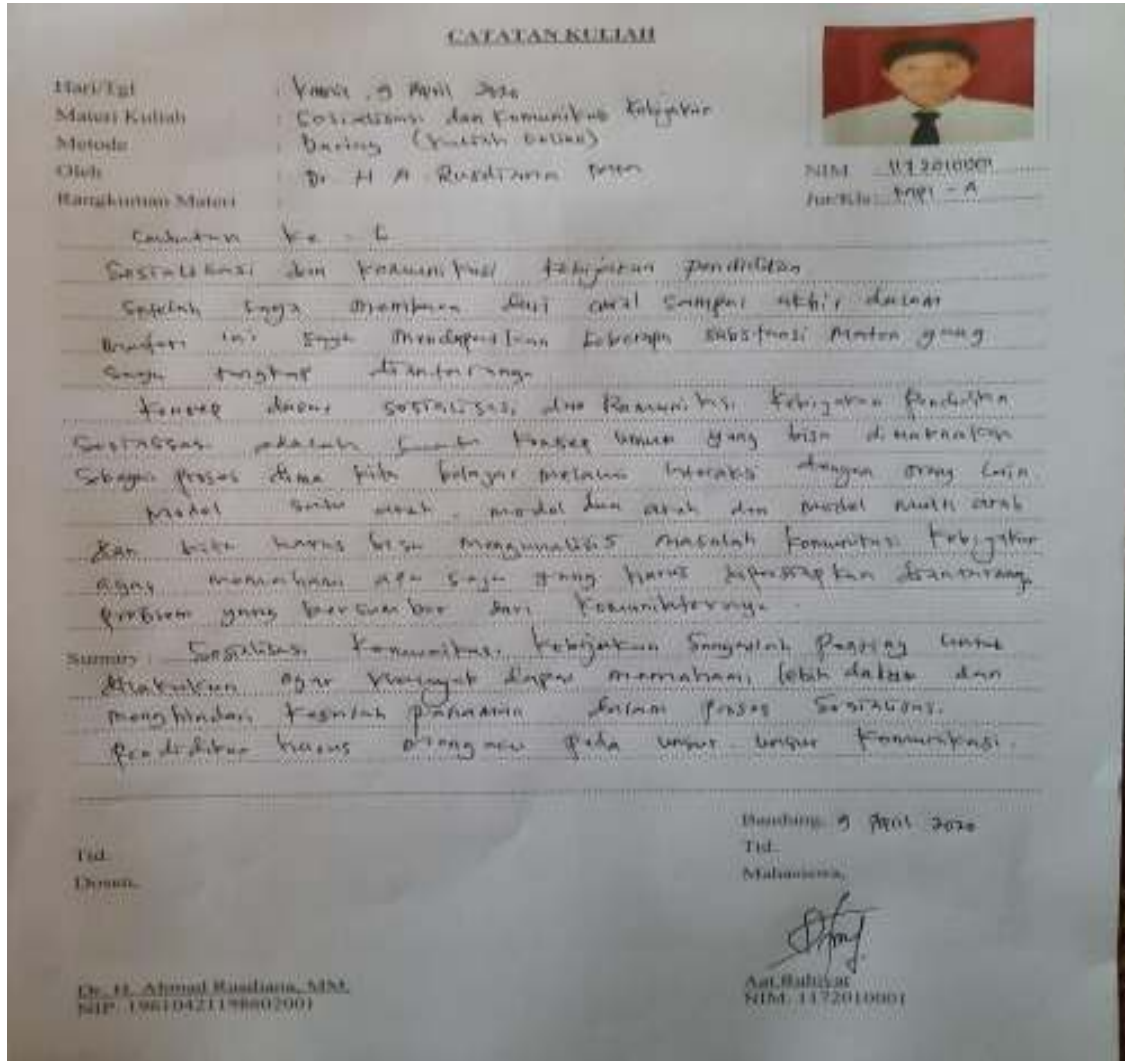 CATATAN KULIAH
Hari/Tgl : Kamis, 9 April 2020
Materi Kuliah : Sosialisasi dan Komunikasi Kebijakan
Metode : Daring (Kuliah Online)
Oleh : Dr. H. A. Rusdiana MM
NIM : 1172010001
Jur/Kls : MPI - A
Rangkuman Materi :
Catatan Ke -
Sosialisasi dan Komunikasi Kebijakan pendidikan
Setelah saya membaca dari awal sampai akhir dalam
ini saya mendapatkan beberapa substansi materi yang
saya tangkap diantaranya
Konsep dasar sosialisasi dan Komunikasi Kebijakan Pendidikan
adalah suatu konsep umum yang bisa dimaknakan
Sebagai proses dima kita belajar melalui interaksi dengan orang lain.
Model satu arah, model dua arah dan model multi arah
dan kita harus bisa menganalisis masalah komunikasi Kebijakan
agar memahami apa saja yang harus dipersiapkan diantaranya
problem yang bersumber dari Komunikatornya.
Sumary : Sosialisasi Komunikasi Kebijakan Sangatlah Penting untuk
dilakukan agar dapat memahami lebih dalam dan
menghindari dalam proses Sosialisasi.
Pendidikan harus mengacu pada unsur-unsur Komunikasi.
Bandung, 9 April 2020
Ttd. Ttd.
Dosen, Mahasiswa,
Dr. H. Ahmad Rusdiana, MM. Aat Ruhiyat
NIP. 196104211986021001 NIM. 1172010001